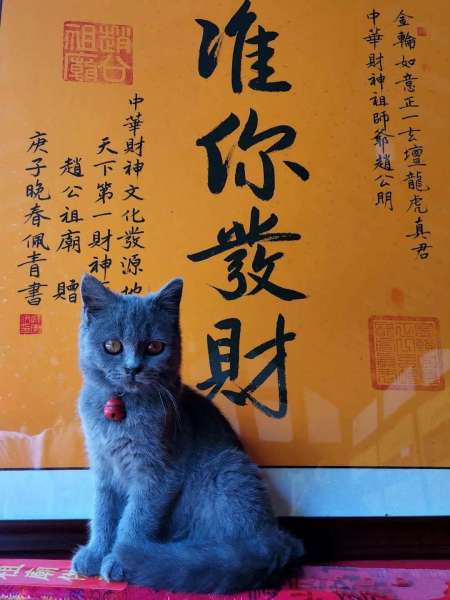 金輪如意正一玄壇龍虎真君
中華財神祖師爺趙公明
准你發財
趙公
祖廟
中華財神文化發源地
天下第一財神
趙公祖廟 贈
庚子晚春佩青書
祖廟